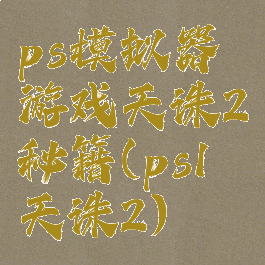 ps模拟器
游戏天诛2
秘籍(psl
天诛2)